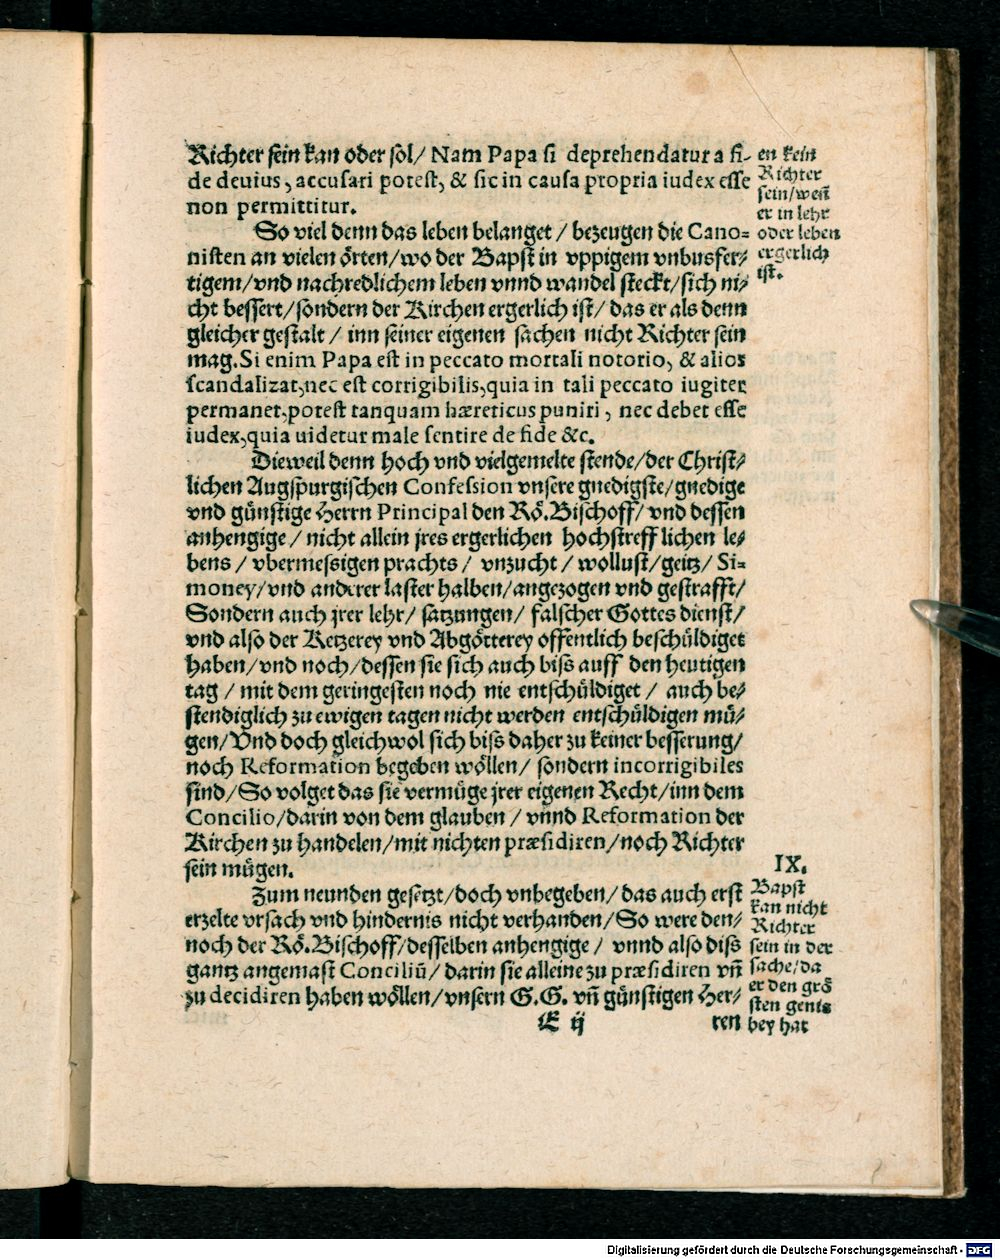 Richter sein kan oder sol/ Nam Papa si deprehendatur a fi-
de deuius, accusari potest, & sic in causa propria iudex esse
non permittitur.
So viel denn das leben belanget / bezeugen die Cano-
nisten an vielen örten/wo der Bapst in vppigem vnbusfer-
tigem/vnd nachredlichem leben vnnd wandel steckt/sich ni-
cht bessert/sondern der Kirchen ergerlich ist/ das er als denn
gleicher gestalt / inn seiner eigenen sachen nicht Richter sein
mag. Si enim Papa est in peccato mortali notorio, & alios
scandalizat, nec est corrigibilis, quia in tali peccato iugiter
permanet, potest tanquam hæreticus puniri, nec debet esse
iudex, quia uidetur male sentire de fide &c.
Dieweil denn hoch vnd vielgemelte stende/der Christ-
lichen Augspurgischen Confession vnsere gnedigste/gnedige
vnd günstige Herrn Principal den Rö. Bischoff/ vnd dessen
anhengige / nicht allein jres ergerlichen hochstrefflichen le-
bens / vbermessigen prachts / vnzucht / wollust/geitz/ Si-
money/vnd anderer laster halben/angezogen vnd gestrafft/
Sondern auch jrer lehr/ satzungen/ falscher Gottes dienst/
vnd also der Ketzerey vnd Abgötterey offentlich beschüldiget
haben/vnd noch/dessen sie sich auch biss auff den heutigen
tag / mit dem geringesten noch nie entschüldiget / auch be-
stendiglich zu ewigen tagen nicht werden entschüldigen mü-
gen/Vnd doch gleichwol sich biss daher zu keiner besserung/
noch Reformation begeben wöllen/ sondern incorrigibiles
sind/So volget das sie vermüge jrer eigenen Recht/inn dem
Concilio/darin von dem glauben / vnnd Reformation der
Kirchen zu handelen/mit nichten præsidiren/noch Richter
sein mügen.
Zum neunden gesetzt/doch vnbegeben/ das auch erst
erzelte vrsach vnd hindernis nicht verhanden/So were den-
noch der Rö. Bischoff/desselben anhengige / vnnd also diss
gantz angemast Conciliū/ darin sie alleine zu præsidiren vn̄
zu decidiren haben wöllen/vnsern G.G. vn̄ günstigen Her-
E ij
ren
en kein
Richter
sein/weñ
er in lehr
oder leben
ergerlich
ist.
IX.
Bapst
kan nicht
Richter
sein in der
sache/da
er den grö
sten genis
bey hat
Digitalisierung gefördert durch die Deutsche Forschungsgemeinschaft - DFG